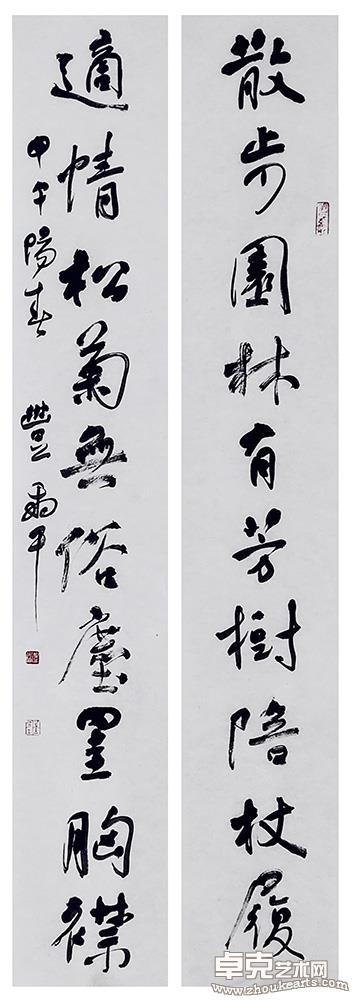 散步園林有芳樹陪杖履
適情松菊無俗塵罣胸襟
甲午陽春
卓克艺术网
www.zhoukearts.com